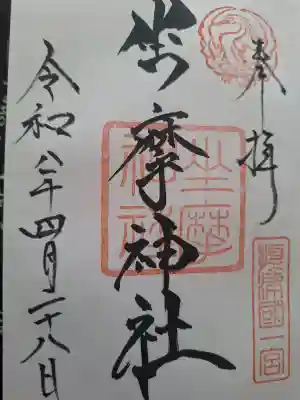 奉拝
摂津國一宮
坐摩神社
坐摩神社
令和八年四月二十八日